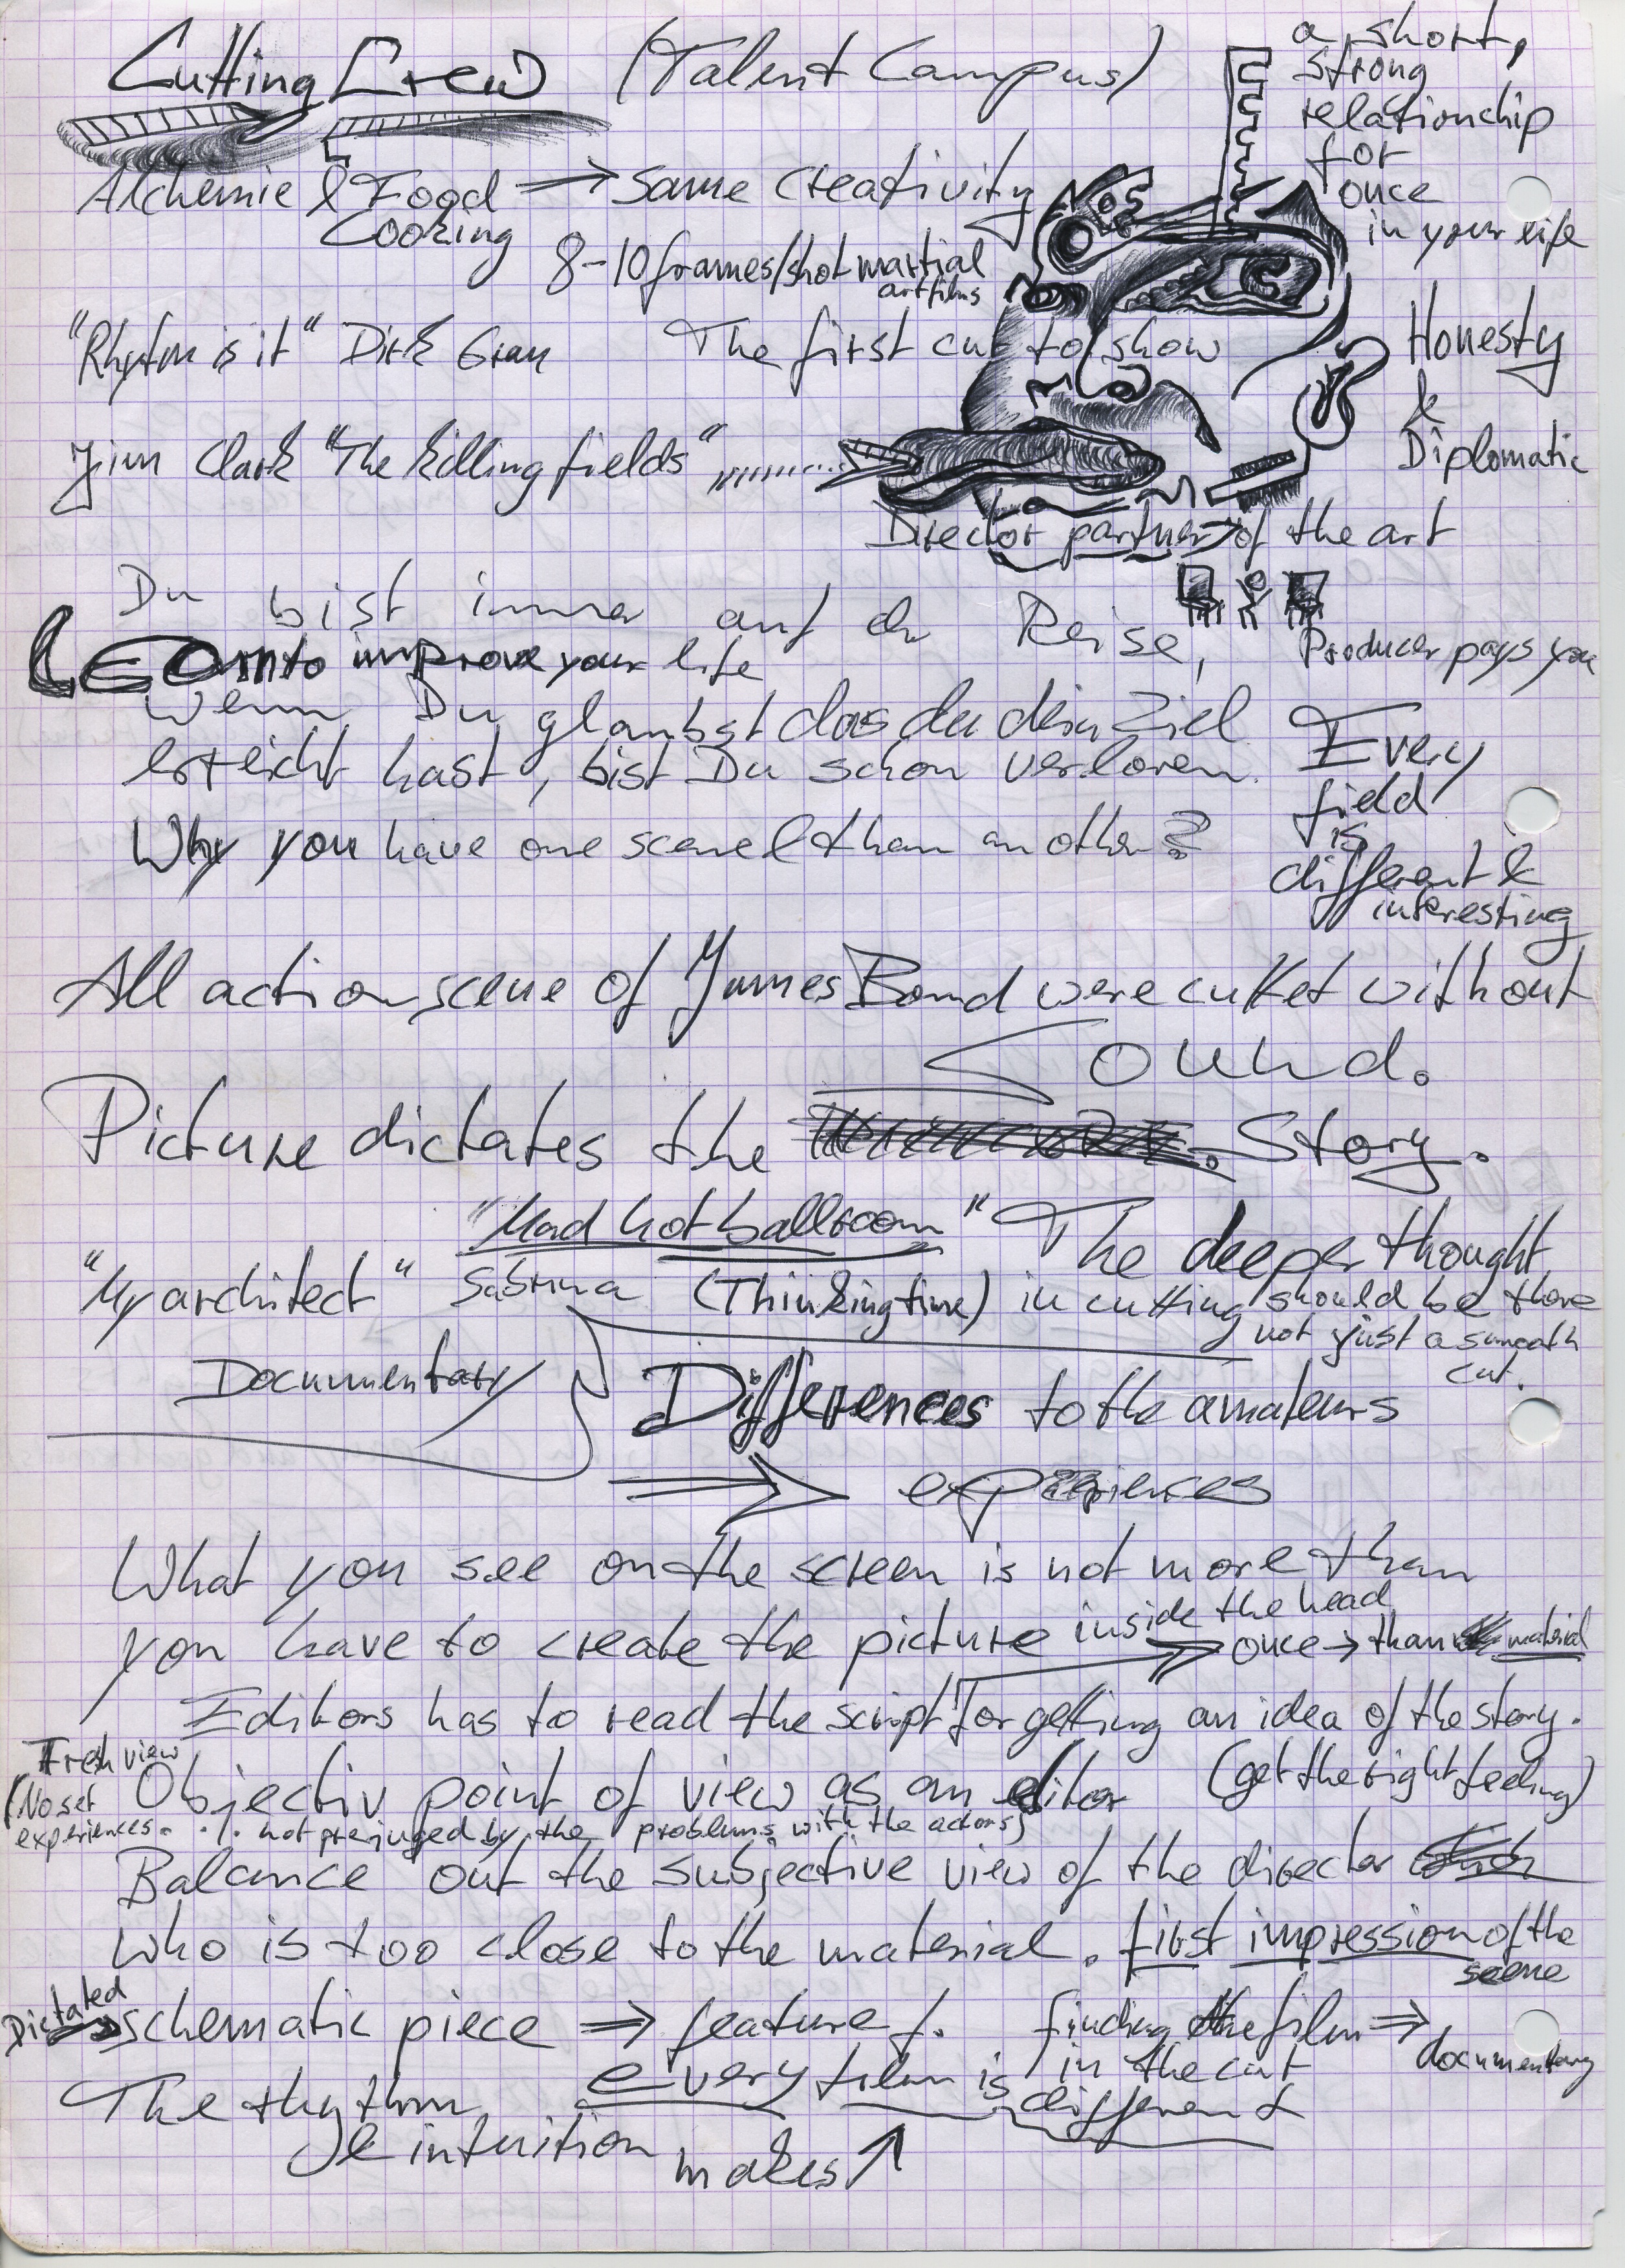 Cutting Crew (Talent Campus)
a short,
strong
relationchip
for
once
in your life
Alchemie & Food → same creativity
Cooking
8-10 frames/shot martial
artfilms
"Rhytm is it" Dirk Grau
The first cut to show
Honesty
&
Diplomatic
Jim Clark "The killing fields"
Director partner of the art
Producer pays you
Du bist immer auf der Reise,
Learn to improve your life
wenn Du glaubst das du dein Ziel
erreicht hast, bist Du schon verloren.
Why you have one scene & than another?
Every
field
is
different &
interesting
All action scene of James Bond were cuttet without
Sound.
Picture dictates the Story.
"Mad hot ballroom"
"My architect" Sabrina (Thinking time)
Documentary
The deeper thought
in cutting should be there
not just a smooth
cut.
Differences to the amateurs
⇒ experiences
What you see on the screen is not more than
you have to create the picture inside the head
once → than material
Editors has to read the script for getting an idea of the story.
Fresh view
(No set
experiences.
Objectiv point of view as an editor (get the right feeling)
./. not prejuged by the problems with the actors)
Balance out the subjective view of the director
who is too close to the material. first impression of the
scene
Dictated
schematic piece ⇒ feature f. finding the film ⇒
in the cut
documentary
The rhythm every film is different
& intuition makes ↑